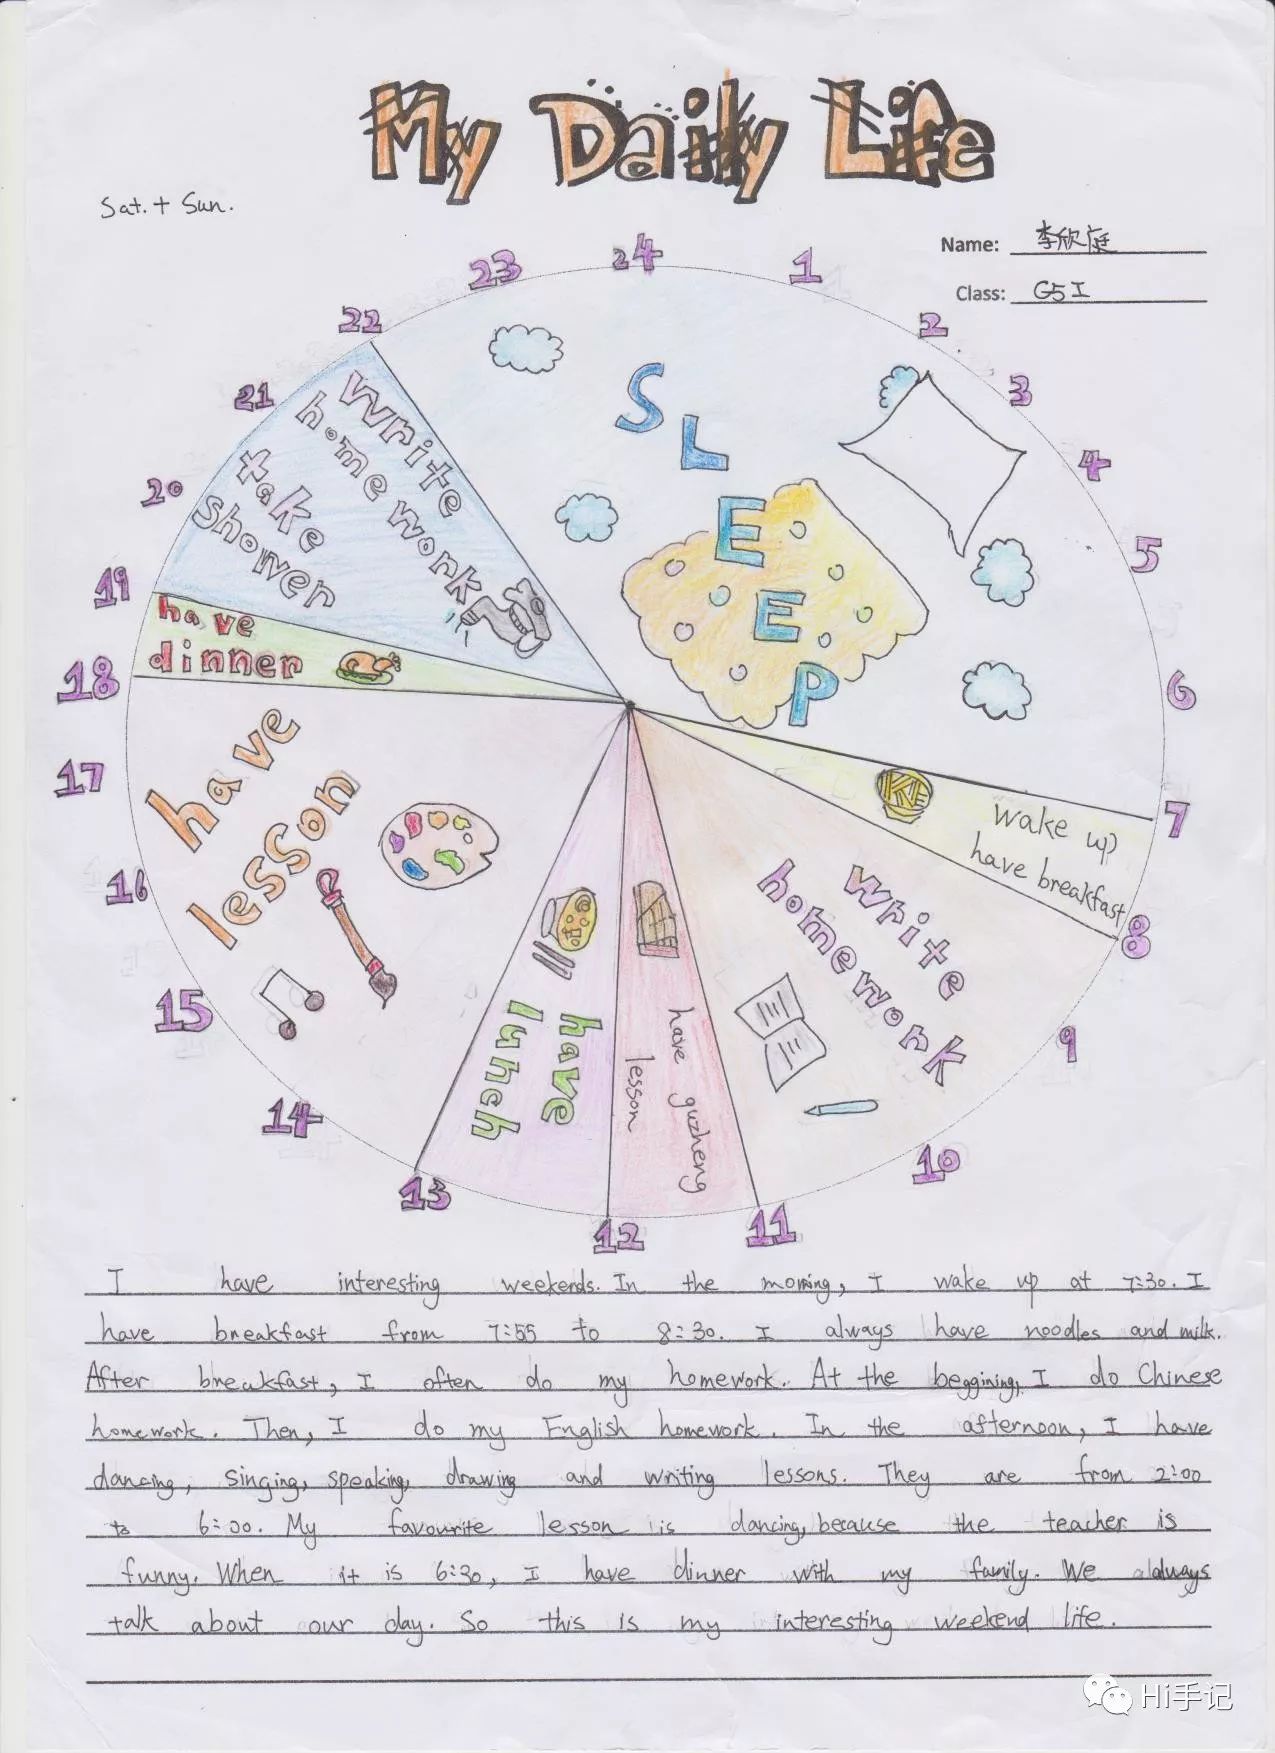 My Daily Life
Sat. + Sun.
Name: 李欣庭
Class: G5I
24
1
2
3
4
5
6
7
8
9
10
11
12
13
14
15
16
17
18
19
20
21
22
23
SLEEP
wake up
have breakfast
write
homework
have guzheng
lesson
have
lunch
have
lesson
have
dinner
Write
homework
take
shower
I have interesting weekends. In the morning, I wake up at 7:30. I
have breakfast from 7:55 to 8:30. I always have noodles and milk.
After breakfast, I often do my homework. At the beggining, I do Chinese
homework. Then, I do my English homework. In the afternoon, I have
dancing, singing, speaking, drawing and writing lessons. They are from 2:00
to 6:00. My favourite lesson is dancing, because the teacher is
funny. When it is 6:30, I have dinner with my family. We always
talk about our day. So this is my interesting weekend life.
Hi手记